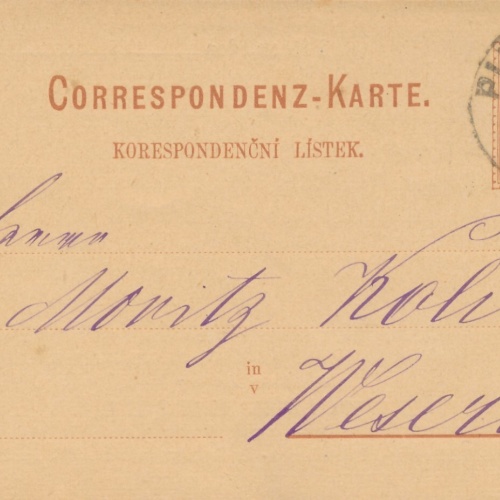 CORRESPONDENZ-KARTE.
KORESPONDENČNÍ LÍSTEK.
Moritz
in
v